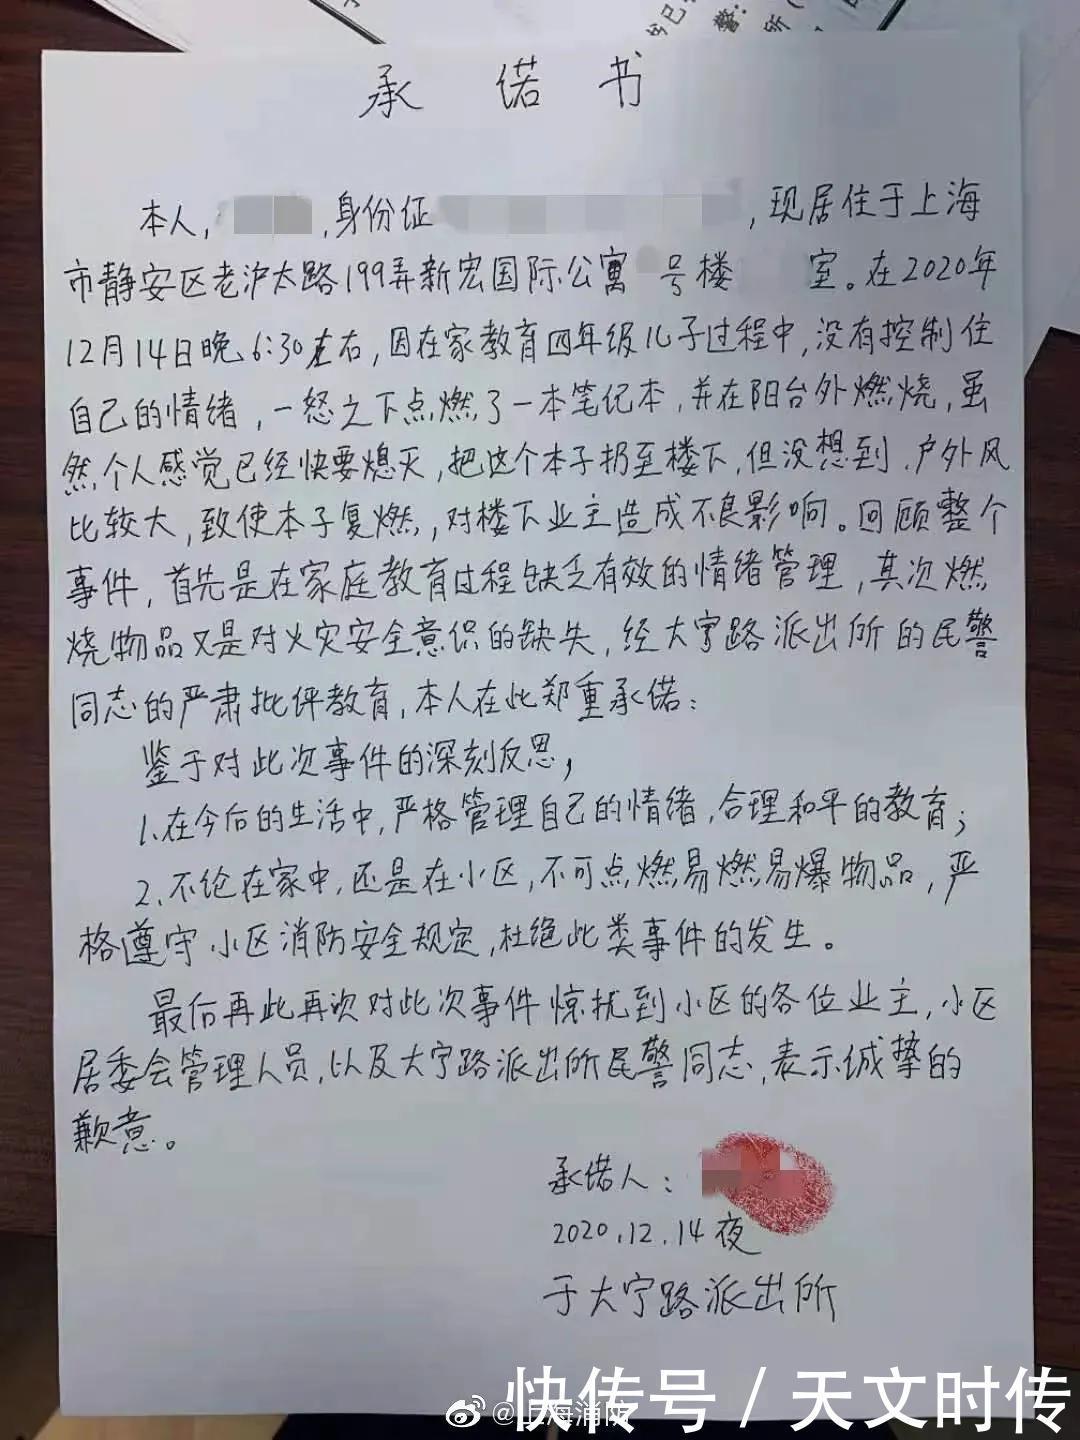 承诺书
本人，,身份证，现居住于上海
市静安区老沪太路199弄新宏国际公寓 号楼 室。在2020年
12月14日晚6:30左右,因在家教育四年级儿子过程中,没有控制住
自己的情绪，一怒之下点燃了一本笔记本,并在阳台外燃烧,虽
然个人感觉已经快要熄灭,把这个本子扔至楼下,但没想到,户外风
比较大,致使本子复燃,对楼下业主造成不良影响。回顾整个
事件,首先是在家庭教育过程缺乏有效的情绪管理,其次燃
烧物品又是对火灾安全意识的缺失,经大宁路派出所的民警
同志的严肃批评教育,本人在此郑重承诺:
鉴于对此次事件的深刻反思,
1、在今后的生活中,严格管理自己的情绪,合理和平的教育;
2、不论在家中,还是在小区,不可点燃易燃易爆物品,严
格遵守小区消防安全规定,杜绝此类事件的发生。
最后再此再次对此次事件惊扰到小区的各位业主,小区
居委会管理人员,以及大宁路派出所民警同志,表示诚挚的
歉意。
承诺人:
2020.12.14夜
于大宁路派出所
@上海消防
快传号/天文时传